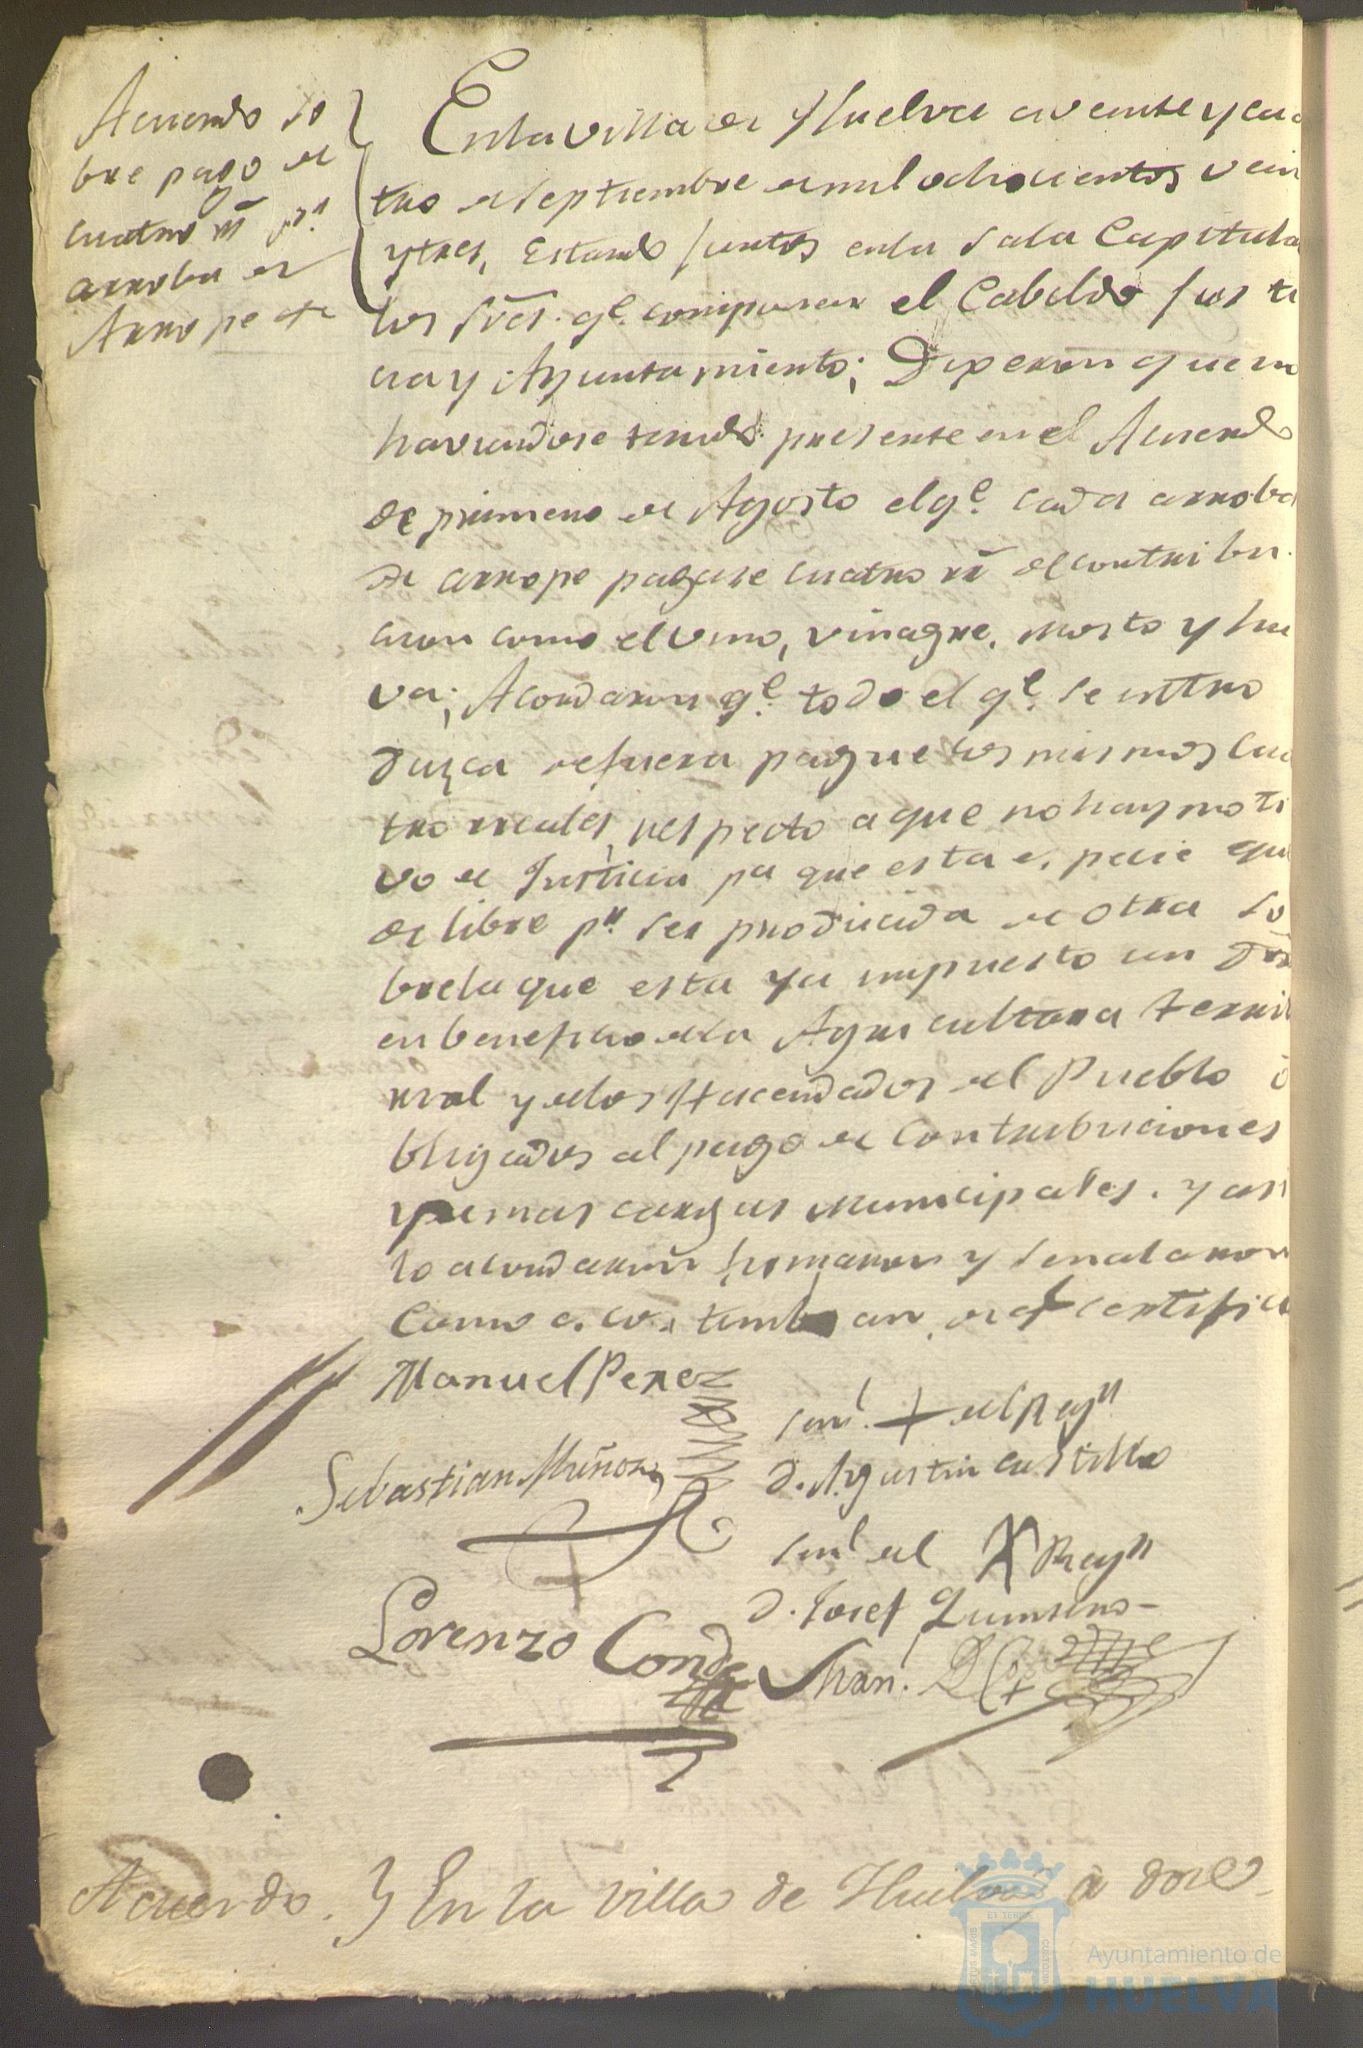 Acuerdo so
bre pago de
cuatro rs pr
arroba de
Arrope &
En la villa de Huelva a veinte y cua
tro de Septiembre de mil ochocientos vein
y tres, Estando juntos en la Sala Capitula
los Sres. qe. componen el Cabildo Justi
cia y Ayuntamiento; Dixeron que no
haviendose tenido presente en el Acuerdo
de primero de Agosto el qe. cada arroba
de arrope pagase cuatro rs de contribu
cion como el vino, vinagre, mosto y hu
va; Acordaron qe. todo el qe. se intro
duzca de fuera pague los mismos cua
tro reales, respecto a que no hay moti
vo de Justicia pa que esta especie que
de libre pr. ser producida de otra so
bre la que esta ya impuesto un
en beneficio de la Agricultura territ
rral y de los Hacendados del Pueblo o
bligados al pago de Contribuciones
y demas cargas Municipales. y asi
lo acordaron firmaron y señalaron
como acostumbran, de qe certifico
Manuel Perez
Señl. + del Regr
Sebastian Muñoz
d. Agustin Castillo
Señl del X Regr
d. Josef Quintero
Lorenzo Conde
Acuerdo. } En la villa de Huelva à doce
Ayuntamiento de
HUELVA